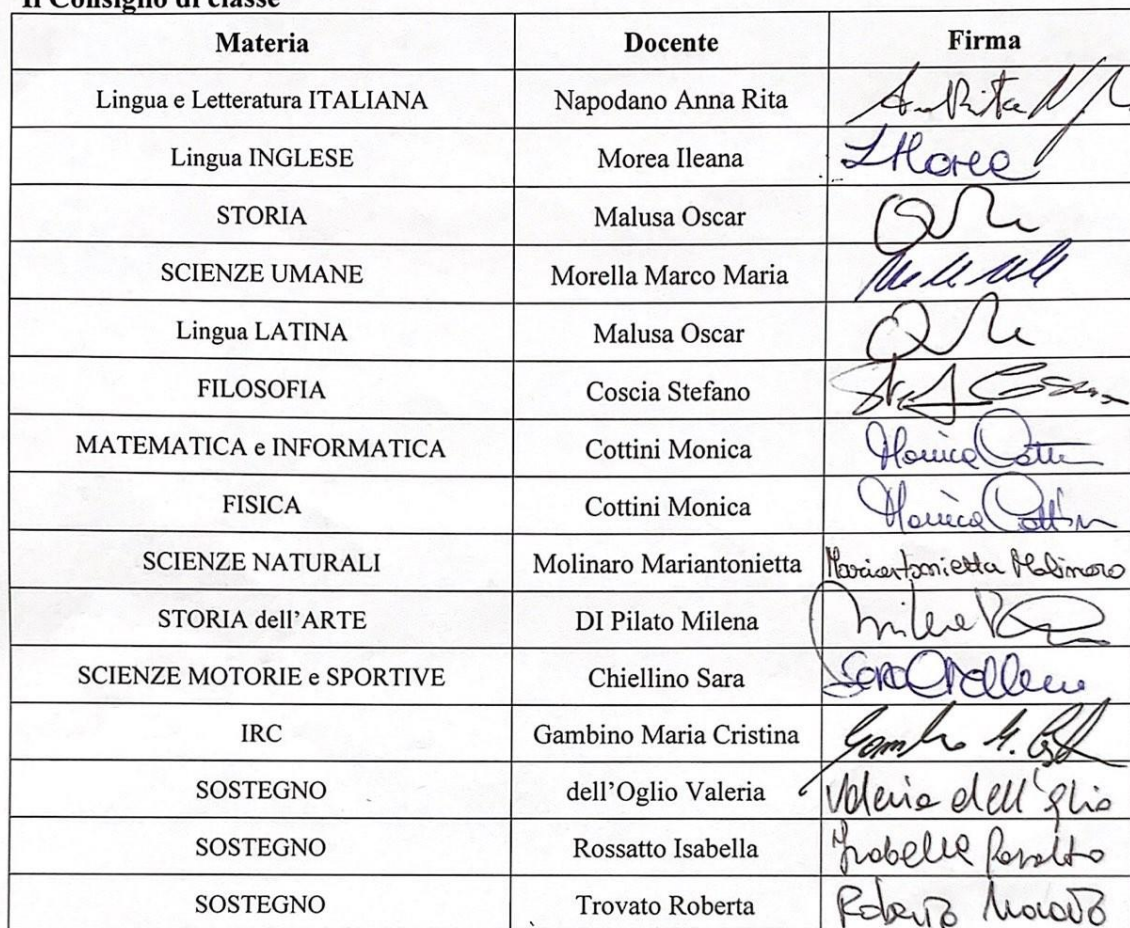 Il Consiglio di classe
Materia Docente Firma
Lingua e Letteratura ITALIANA Napodano Anna Rita
Lingua INGLESE Morea Ileana IMorea
STORIA Malusa Oscar
SCIENZE UMANE Morella Marco Maria
Lingua LATINA Malusa Oscar
FILOSOFIA Coscia Stefano
MATEMATICA e INFORMATICA Cottini Monica Monica
FISICA Cottini Monica Monica
SCIENZE NATURALI Molinaro Mariantonietta Mariantonietta Molinaro
STORIA dell’ARTE DI Pilato Milena
SCIENZE MOTORIE e SPORTIVE Chiellino Sara
IRC Gambino Maria Cristina
SOSTEGNO dell’Oglio Valeria Valeria dell'Oglio
SOSTEGNO Rossatto Isabella Isabella
SOSTEGNO Trovato Roberta Roberta Trovato